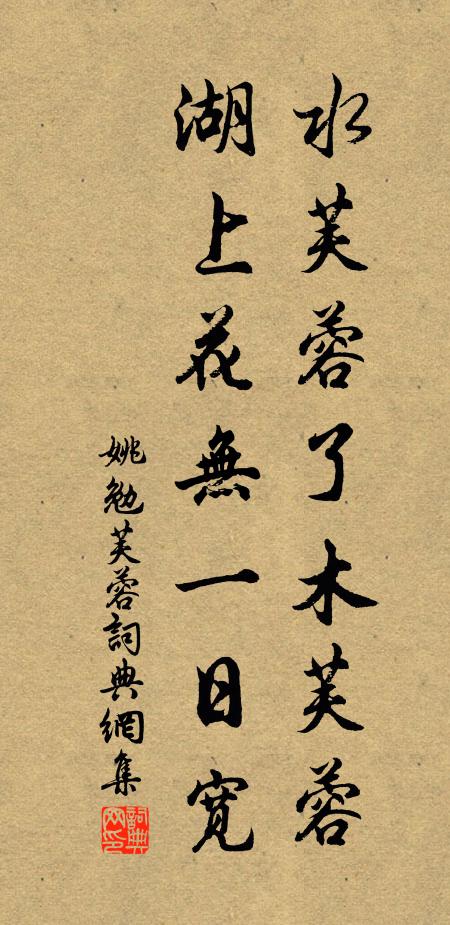 水芙蓉了木芙蓉
湖上花無一日寬
姚勉芙蓉詞典網集
詞典網印